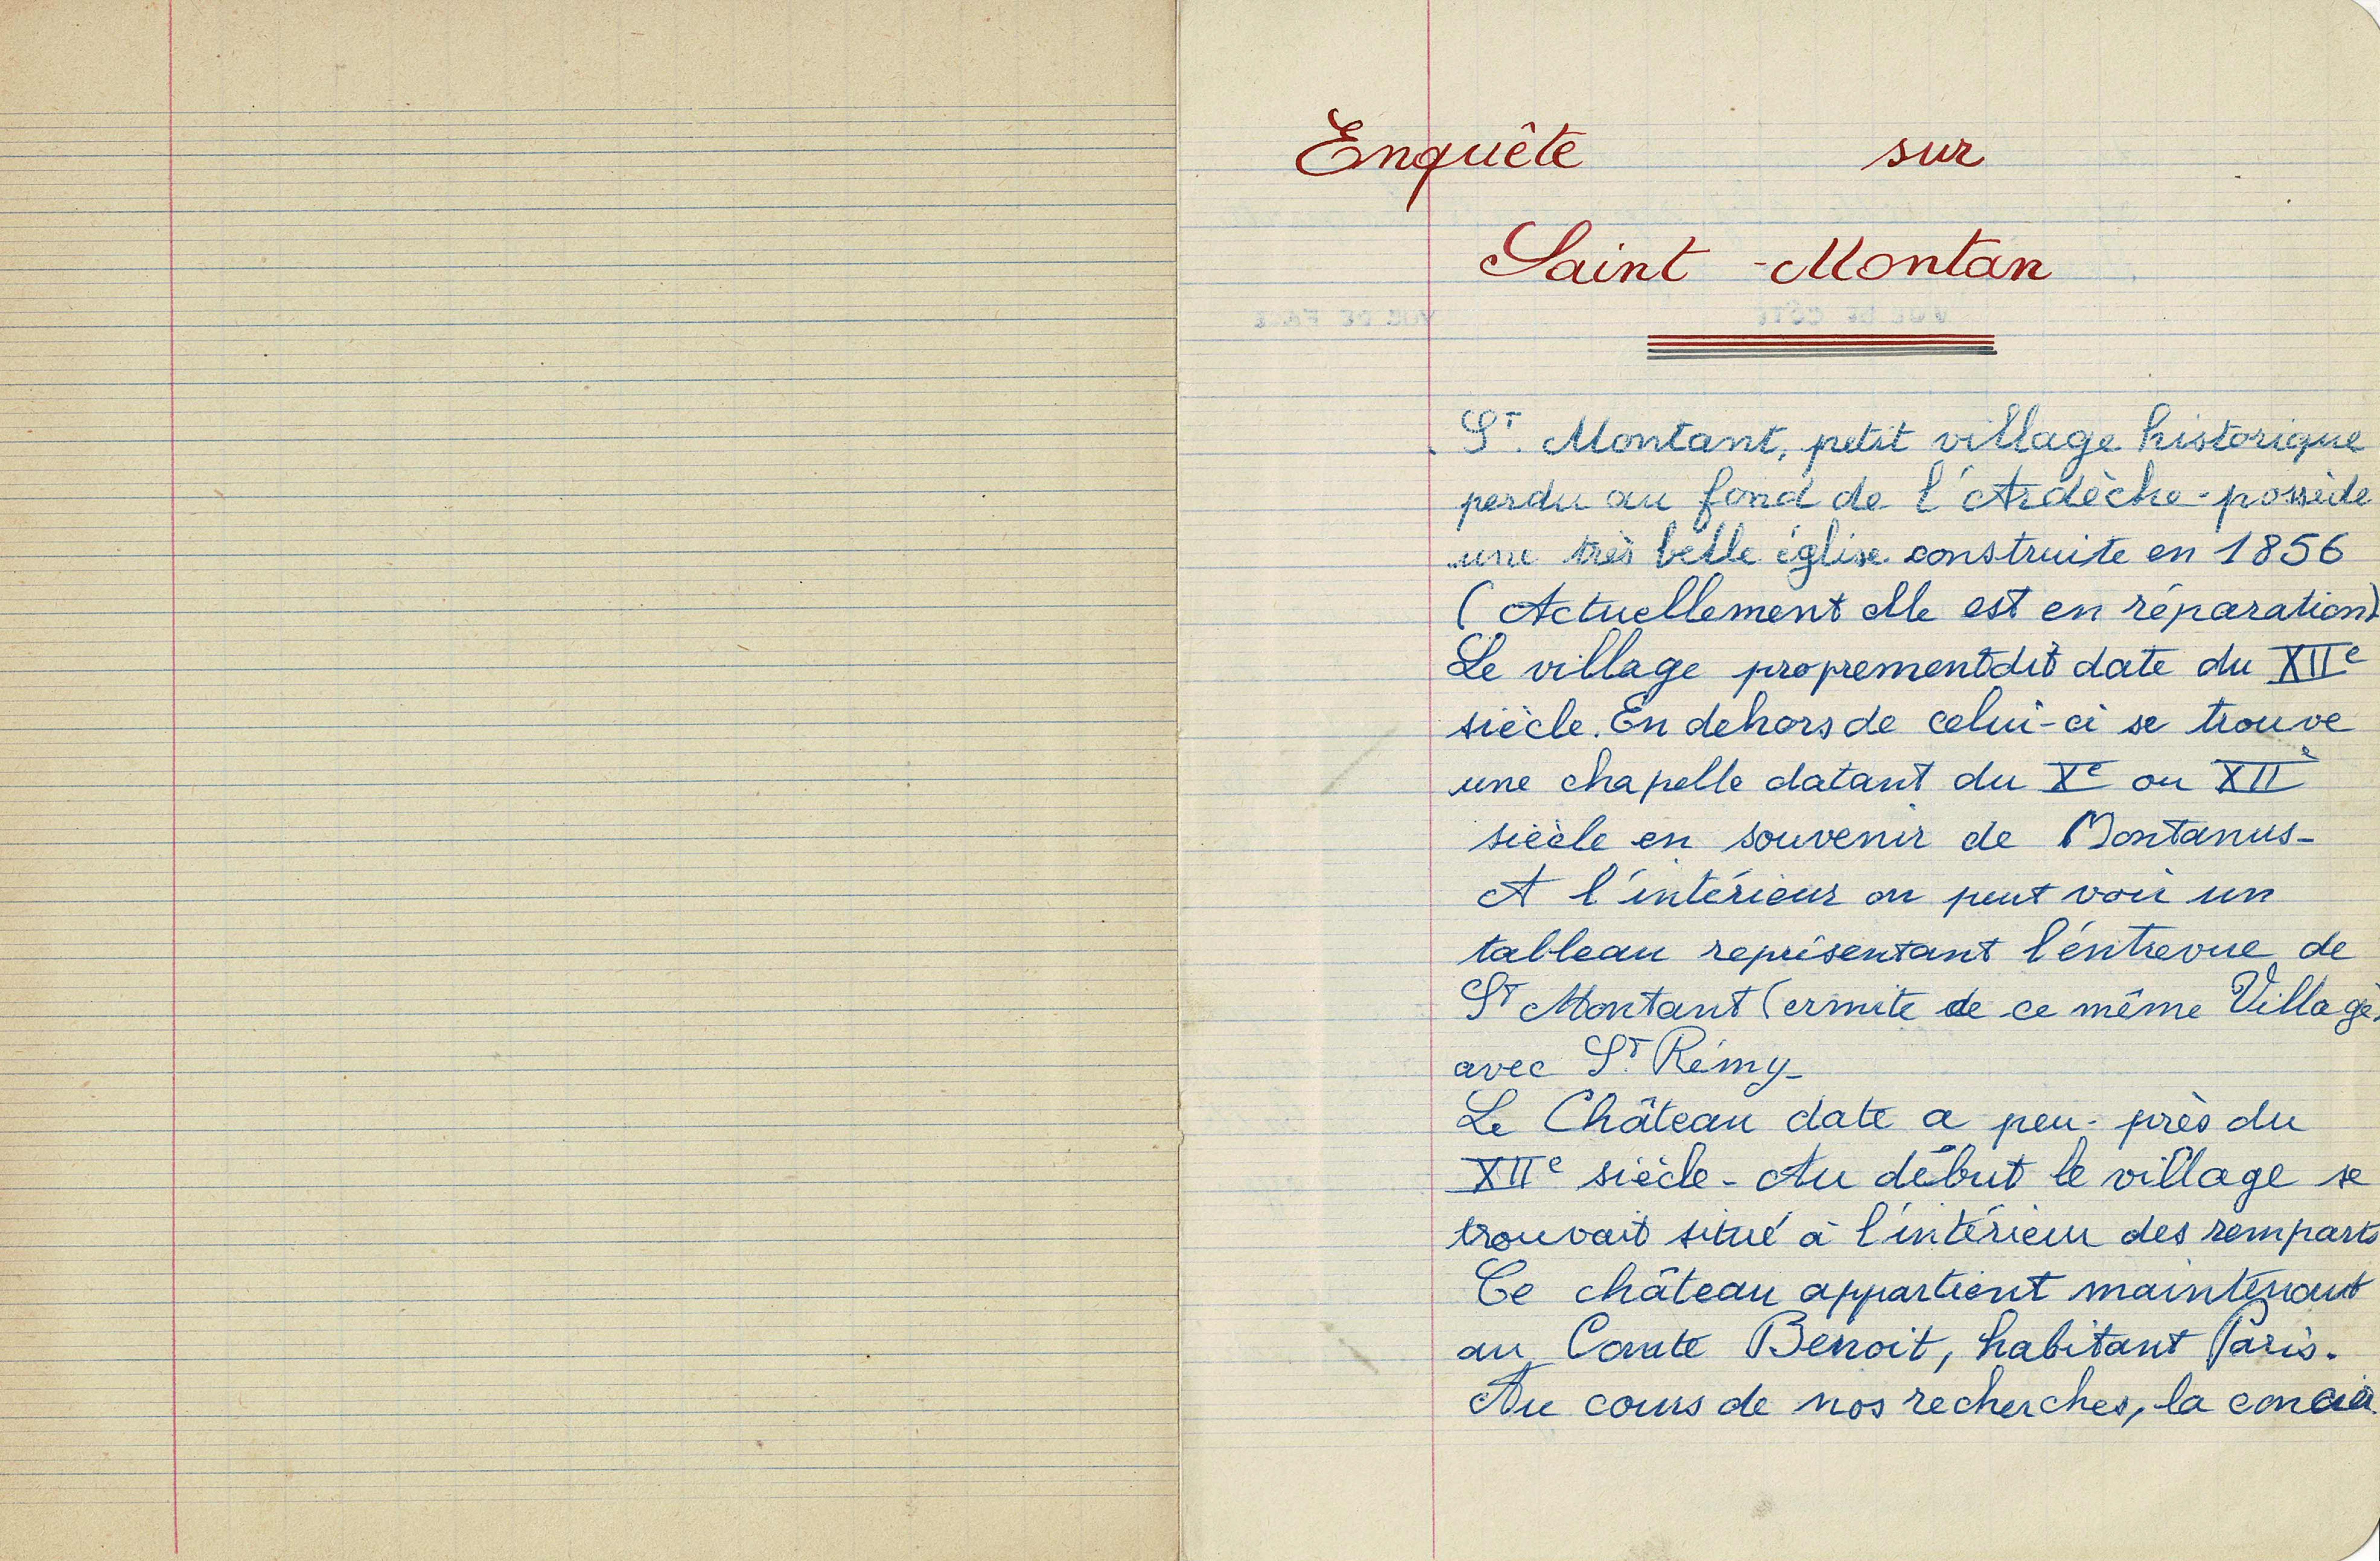 Enquête sur
Saint-Montan
VUE DE FACE VUE DE CÔTÉ
St. Montant, petit village historique
perdu au fond de l'Ardèche - possède
une très belle église construite en 1856
(Actuellement elle est en réparation)
Le village proprement dit date du XIIe
siècle. En dehors de celui-ci se trouve
une chapelle datant du Xe ou XIIe
siècle en souvenir de Montanus -
A l'intérieur on peut voir un
tableau représentant l'éntrevue de
St Montant (ermite de ce même Village)
avec St. Rémy -
Le Château date a peu-près du
XIIe siècle - Au début le village se
trouvait situé à l'intérieur des remparts
Ce château appartient maintenant
au Comte Benoit, habitant Paris.
Au cours de nos recherches, la concier